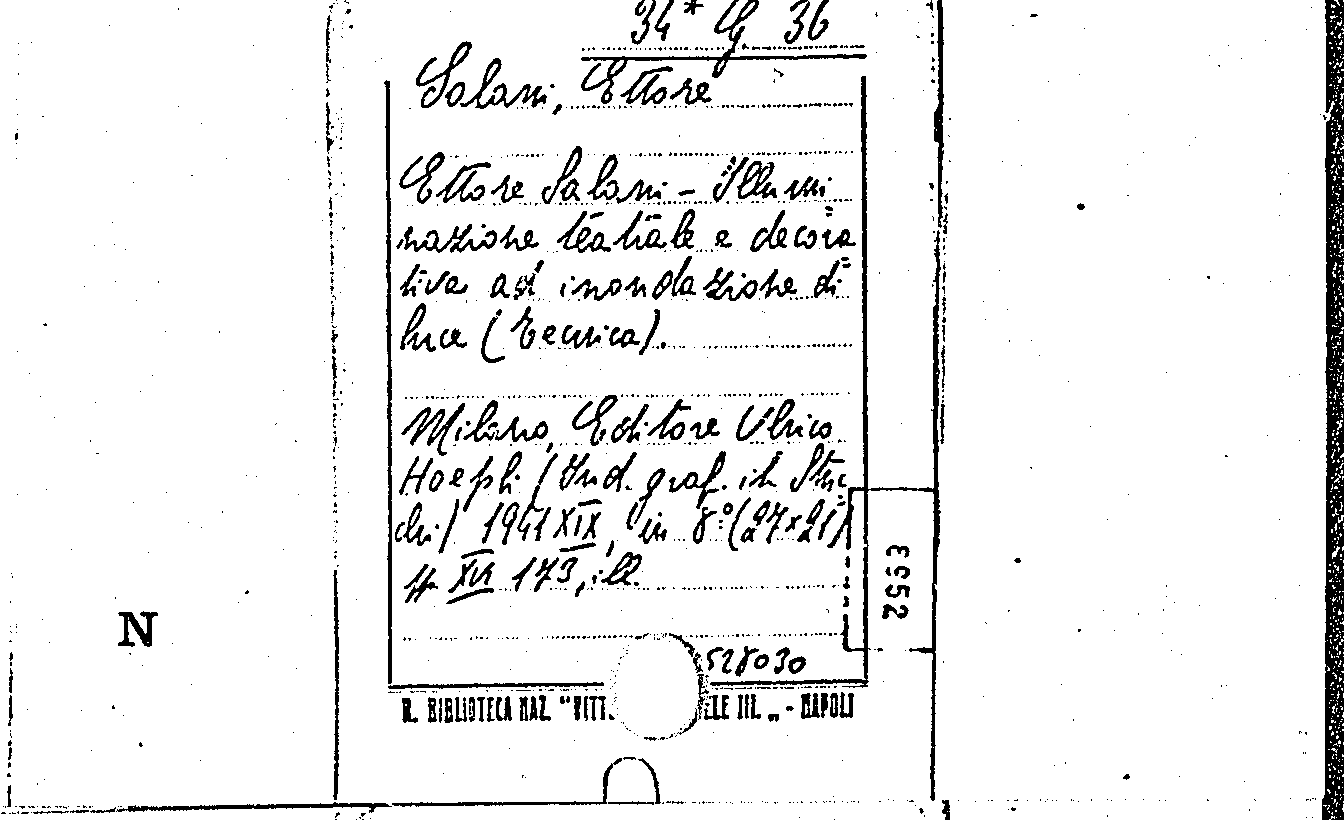 34* G. 36
Salani, Ettore
Ettore Salani - Illumi
nazione teatrale e decora=
tiva ad inondazione di=
luce (Tecnica).
Milano, Editore Ulrico
Hoepli (Ind. graf. it. Stuc=
chi) 1941 XIX, in 8.° (27x21)
pp. XVI 173, ill.
528030
R. BIBLIOTECA NAZ. "VITT. ELE III. „ - NAPOLI
E952
N